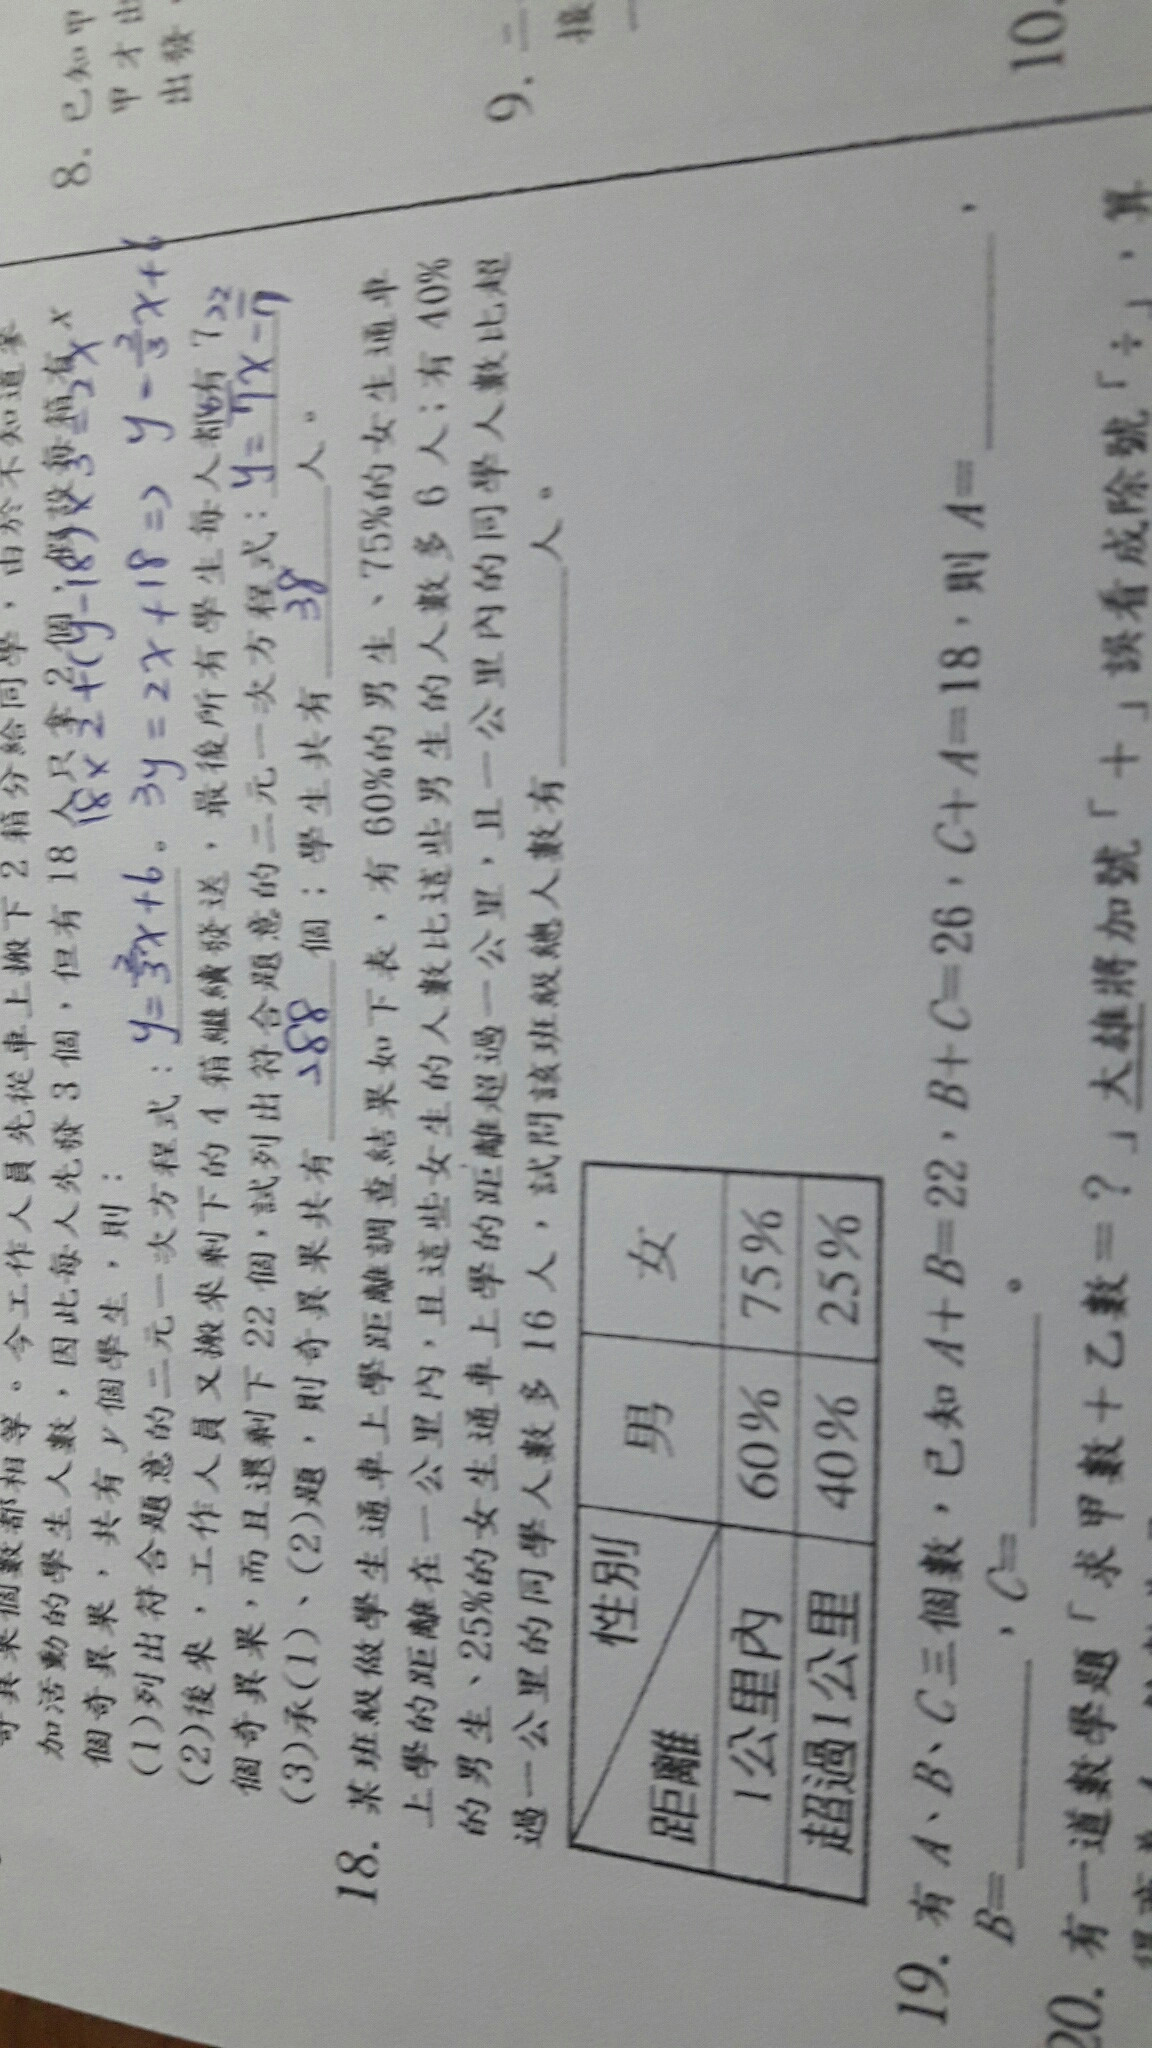 奇異果個數都相等。今工作人員先從車上搬下2箱分給同學,由於不知道
加活動的學生人數,因此每人先發3個,但有18人只拿2個,假設每箱有x
18×2+(y-18)×3=2x
個奇異果,共有y個學生,則:
(1)列出符合題意的二元一次方程式:y=2/3x+6。3y=2x+18=>y=2/3x+6
(2)後來,工作人員又搬來剩下的4箱繼續發送,最後所有學生每人都有7
個奇異果,而且還剩下22個,試列出符合題意的二元一次方程式:
(3)承(1)、(2)題,則奇異果共有288個;學生共有38人。
18. 某班級做學生通車上學距離調查結果如下表,有60%的男生、75%的女生通車
上學的距離在一公里內,且這些女生的人數比這些男生的人數多6人;有40%
的男生、25%的女生通車上學的距離超過一公里,且一公里內的同學人數比超
過一公里的同學人數多16人,試問該班級總人數有 人。
性別 男 女
距離
1公里內 60% 75%
超過1公里 40% 25%
19. 有A、B、C三個數,已知A+B=22,B+C=26,C+A=18,則A= ,
B= ,C= 。
20. 有一道數學題「求甲數+乙數=?」大雄將加號「+」誤看成除號「÷」,算
8. 已知甲
甲才出
出發
9. 二
接
10.